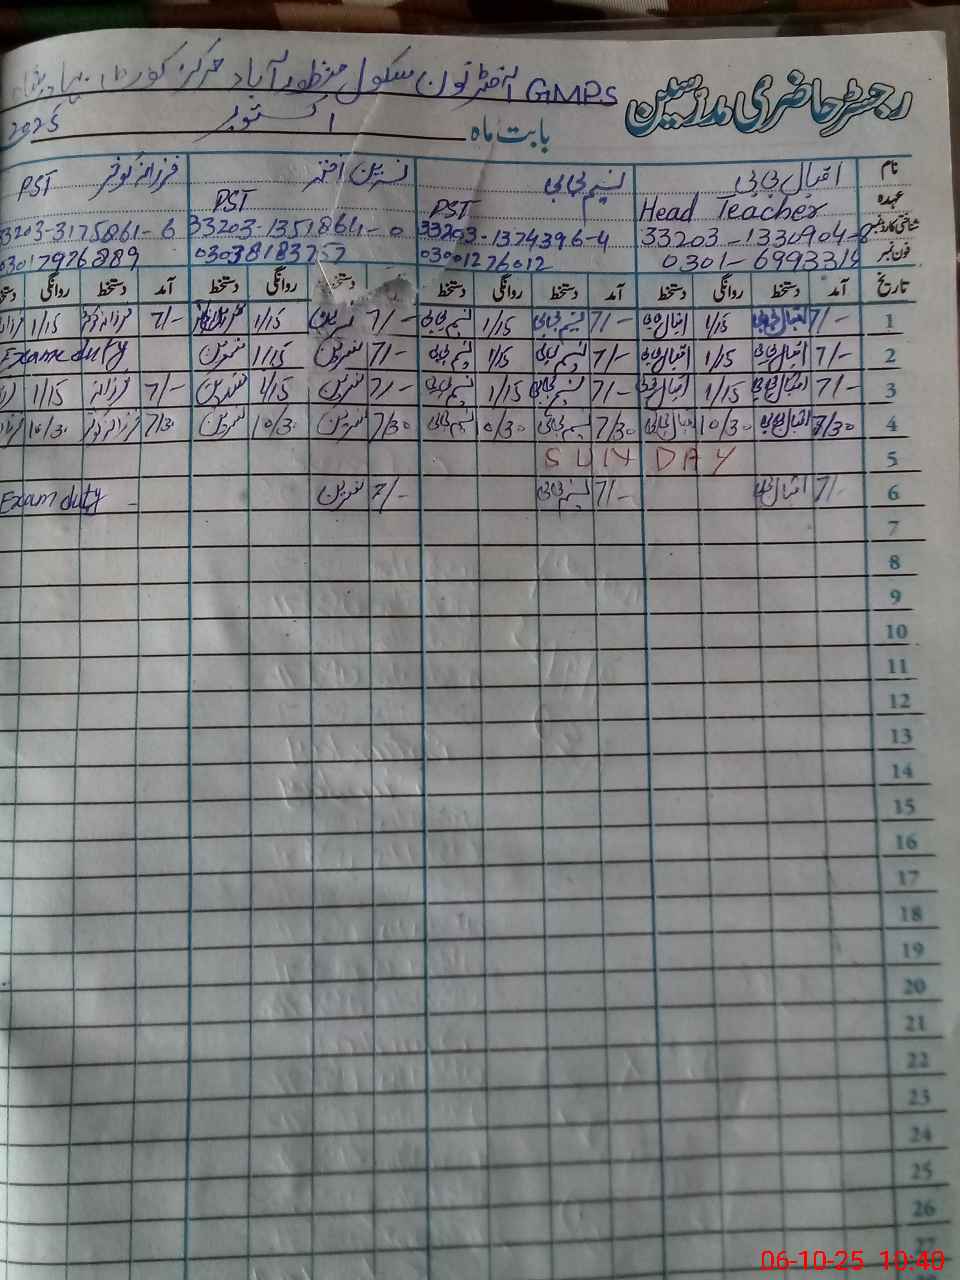 رجسٹر حاضری مدرسین
GMPS آفٹر نون سکول منظور آباد مرکز کورٹ
بابت ماہ اکتوبر 2025
نام اقبال بی بی نسیم بی بی نسرین اختر فرزانہ کوثر
عہدہ Head Teacher PST PST PST
شناختی کارڈ نمبر 33203-1330904-8 33203-1374396-4 33203-1351864-0 33203-3175861-6
فون نمبر 0301-6993319 03001276012 03038183757 03017926889
تاریخ آمد دستخط روانگی دستخط آمد دستخط روانگی دستخط دستخط روانگی دستخط آمد دستخط روانگی
1 7/- اقبال بی بی 1/15 اقبال بی بی 7/- نسیم بی بی 1/15 نسیم بی بی 7/- نسرین 1/15 نسرین 7/- فرزانہ کوثر 1/15
2 7/- اقبال بی بی 1/15 اقبال بی بی 7/- نسیم بی بی 1/15 نسیم بی بی 7/- نسرین 1/15 نسرین Exam duty
3 7/- اقبال بی بی 1/15 اقبال بی بی 7/- نسیم بی بی 1/15 نسیم بی بی 7/- نسرین 1/15 نسرین 7/- فرزانہ 1/15
4 7/30 اقبال بی بی 10/30 اقبال بی بی 7/30 نسیم بی بی 10/30 نسیم بی بی 7/30 نسرین 10/30 نسرین 7/30 فرزانہ کوثر 10/30
5 SUNDAY
6 7/- اقبال بی بی 7/- نسیم بی بی 7/- نسرین Exam duty
7
8
9
10
11
12
13
14
15
16
17
18
19
20
21
22
23
24
25
26
27
06-10-25 10:40